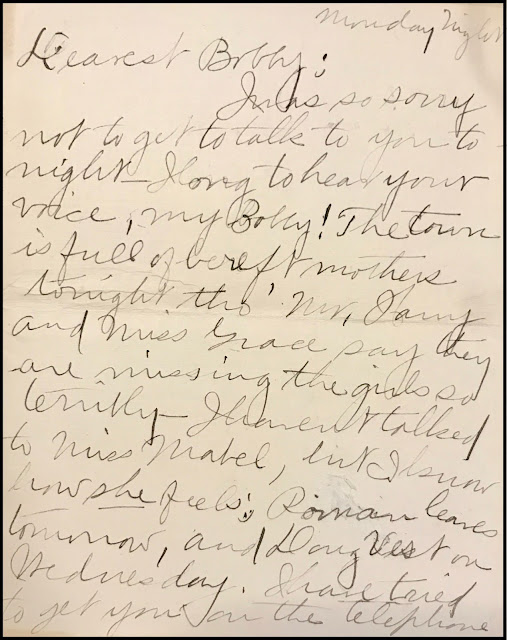 Monday Night
Dearest Bobby;
I was so sorry
not to get to talk to you to-
night - I long to hear your
voice, my Bobby! The town
is full of bereft mothers
tonight tho' Mr.
and Miss Grace say they
are missing the girls so
terribly - I haven't talked
to Miss Mabel, but I know
how she feels; Roman leaves
tomorrow, and Doug West on
Wednesday. I have tried
to get you on the telephone